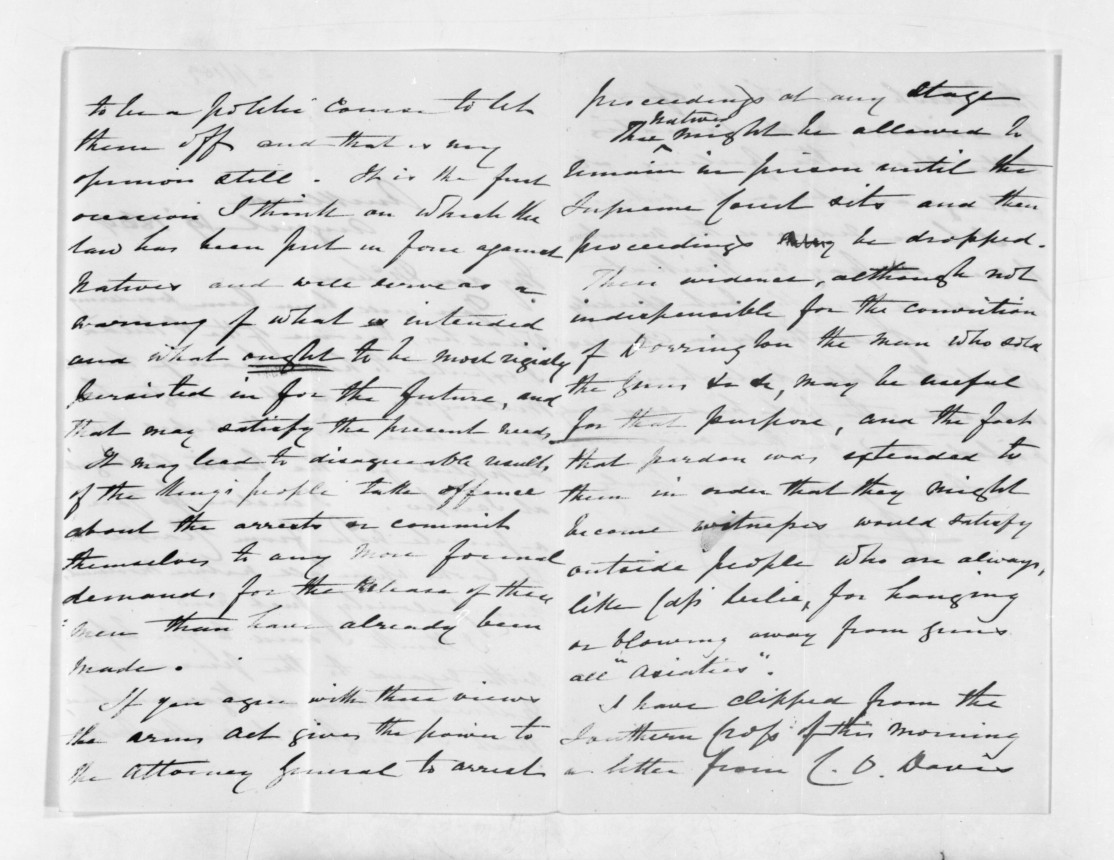 to be a politic course to let
them off and that is my
opinion still. It is the first
occasion I think on which the
law has been put in force against
Natives and will serve as a
warning of what is intended
and what ought to be most rigidly
persisted in for the future, and
that may satisfy the present need.
It may lead to disagreeable results
if the Kings people take offence
about the arrests or commit
themselves to any more formal
demands for the release of these
men than have already been
made.
If you agree with these views
the arms act gives the power to
the Attorney General to arrest
proceedings at any stage
These Natives might be allowed to
remain in prison until the
Supreme Court sits and then
proceedings be dropped.
Their evidence, although not
indispensible for the conviction
of Dorrington the man who sold
the guns &c &c, may be useful
for that purpose, and the fact
that pardon was extended to
them in order that they might
become witnesses would satisfy
outside people who are always,
like for hanging
or blowing away from guns
all "Asiatics".
I have clipped from the
Southern Cross of this morning
a letter from C. O. Davis